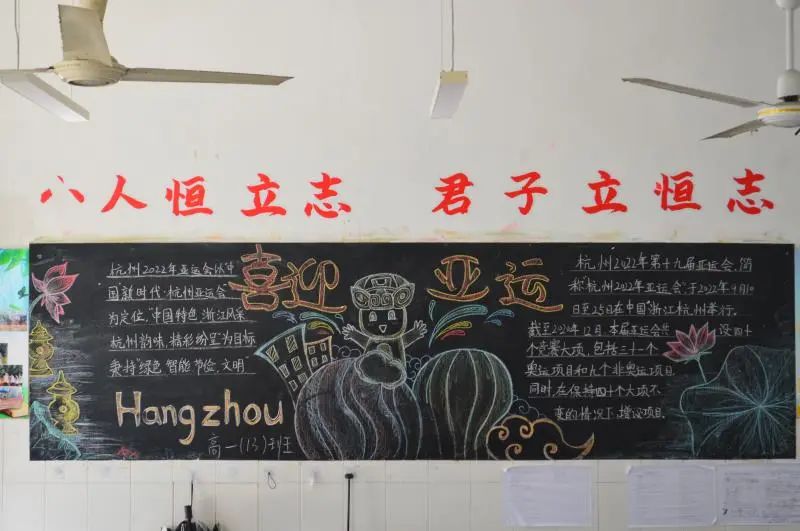 小人恒立志 君子立恒志
喜迎亚运
杭州2022年亚运会以"中
国新时代·杭州亚运会"
为定位,"中国特色 浙江风采
杭州韵味 精彩纷呈"为目标
秉持"绿色 智能 节俭 文明"
Hangzhou
高一(13)班
杭州2022年第十九届亚运会,简
称"杭州2022年亚运会"于2022年9月10
日至25日在中国"浙江杭州举行.
截至2020年12月.本届亚运会共设四十
个竞赛大项,包括三十一个
奥运项目和九个非奥运项目
同时,在保持四十个大项不
变的情况下,增设项目